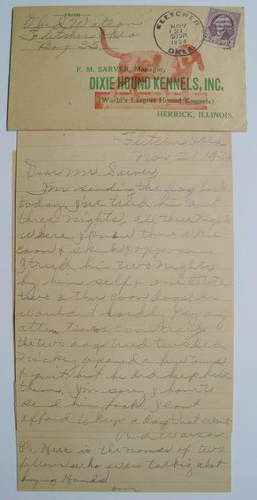 From
Fletcher Okla
Box 25
FLETCHER
NOV
21
1934
OKLA.
F. M. SARVER, Manager,
DIXIE HOUND KENNELS, INC.
(World's Largest Hound Kennels)
HERRICK, ILLINOIS.
Fletcher Okla
Nov 21, 1934
Dear Mr Sarver
Im sending the dog back
today. Ive tried him out
three nights, all three nights
where I know there were
coon & skunk & oppossom
I tried him two nights
by him self &
two other coon dogs. He
wouldent hardly pay any
attention to
the two dogs treed twice
& put out he did help
them, Im sorry I have to
send him back, I cant
afford to keep a dog that wont
Watson
PS. Here is the names of two
fellows who were talking about
buying Hounds